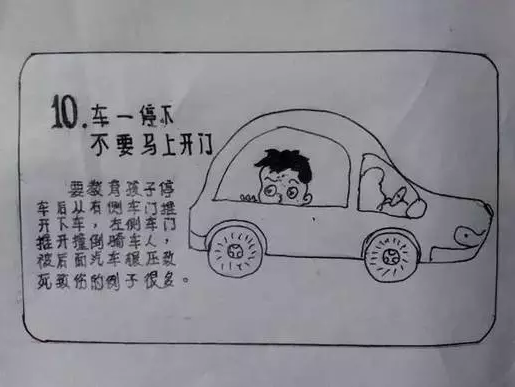 10. 车一停不
不要马上开门
要教育孩子停
车后从有侧车门推
开下车，左侧车门
推开撞倒骑车人，
被后面汽车辗压致
死致伤的例子很多。